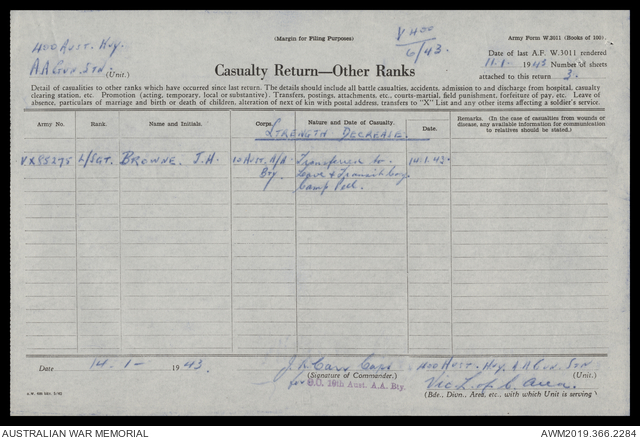 (Margin for Filing Purposes)
V 400
6/43.
Army Form W.3011 (Books of 100)
400 Aust. Hvy.
A A Gun. Stn.
(Unit.)
Date of last A.F. W.3011 rendered
11.1. 1943 Number of sheets
attached to this return 3.
Casualty Return—Other Ranks
Detail of casualties to other ranks which have occurred since last return. The details should include all battle casualties, accidents, admission to and discharge from hospital, casualty
clearing station, etc. Promotion (acting, temporary, local or substantive). Transfers, postings, attachments, etc., courts-martial, field punishment, forfeiture of pay, etc. Leave of
absence, particulars of marriage and birth or death of children, alteration of next of kin with postal address, transfers to "X" List and any other items affecting a soldier's service.
Army No. Rank. Name and Initials. Corps. Nature and Date of Casualty. Date. Remarks. (In the case of casualties from wounds or disease, any available information for communication to relatives should be stated.)
Strength Decrease.
VX95275 L/Sgt. Browne. J.H. 10 Aust. A/A Transferred to 14.1.43.
Bty. Leave & Transit Coy.
Camp Pell.
Date 14. 1 - 1943.
J. Carr Capt
(Signature of Commander.)
for O.C. 29th Aust. A.A. Bty.
400 Aust. Hvy. A.A Gun. Stn
(Unit.)
Vic L. of C. Area.
(Bde., Divn., Area, etc., with which Unit is serving)
AUSTRALIAN WAR MEMORIAL
AWM2019.366.2284